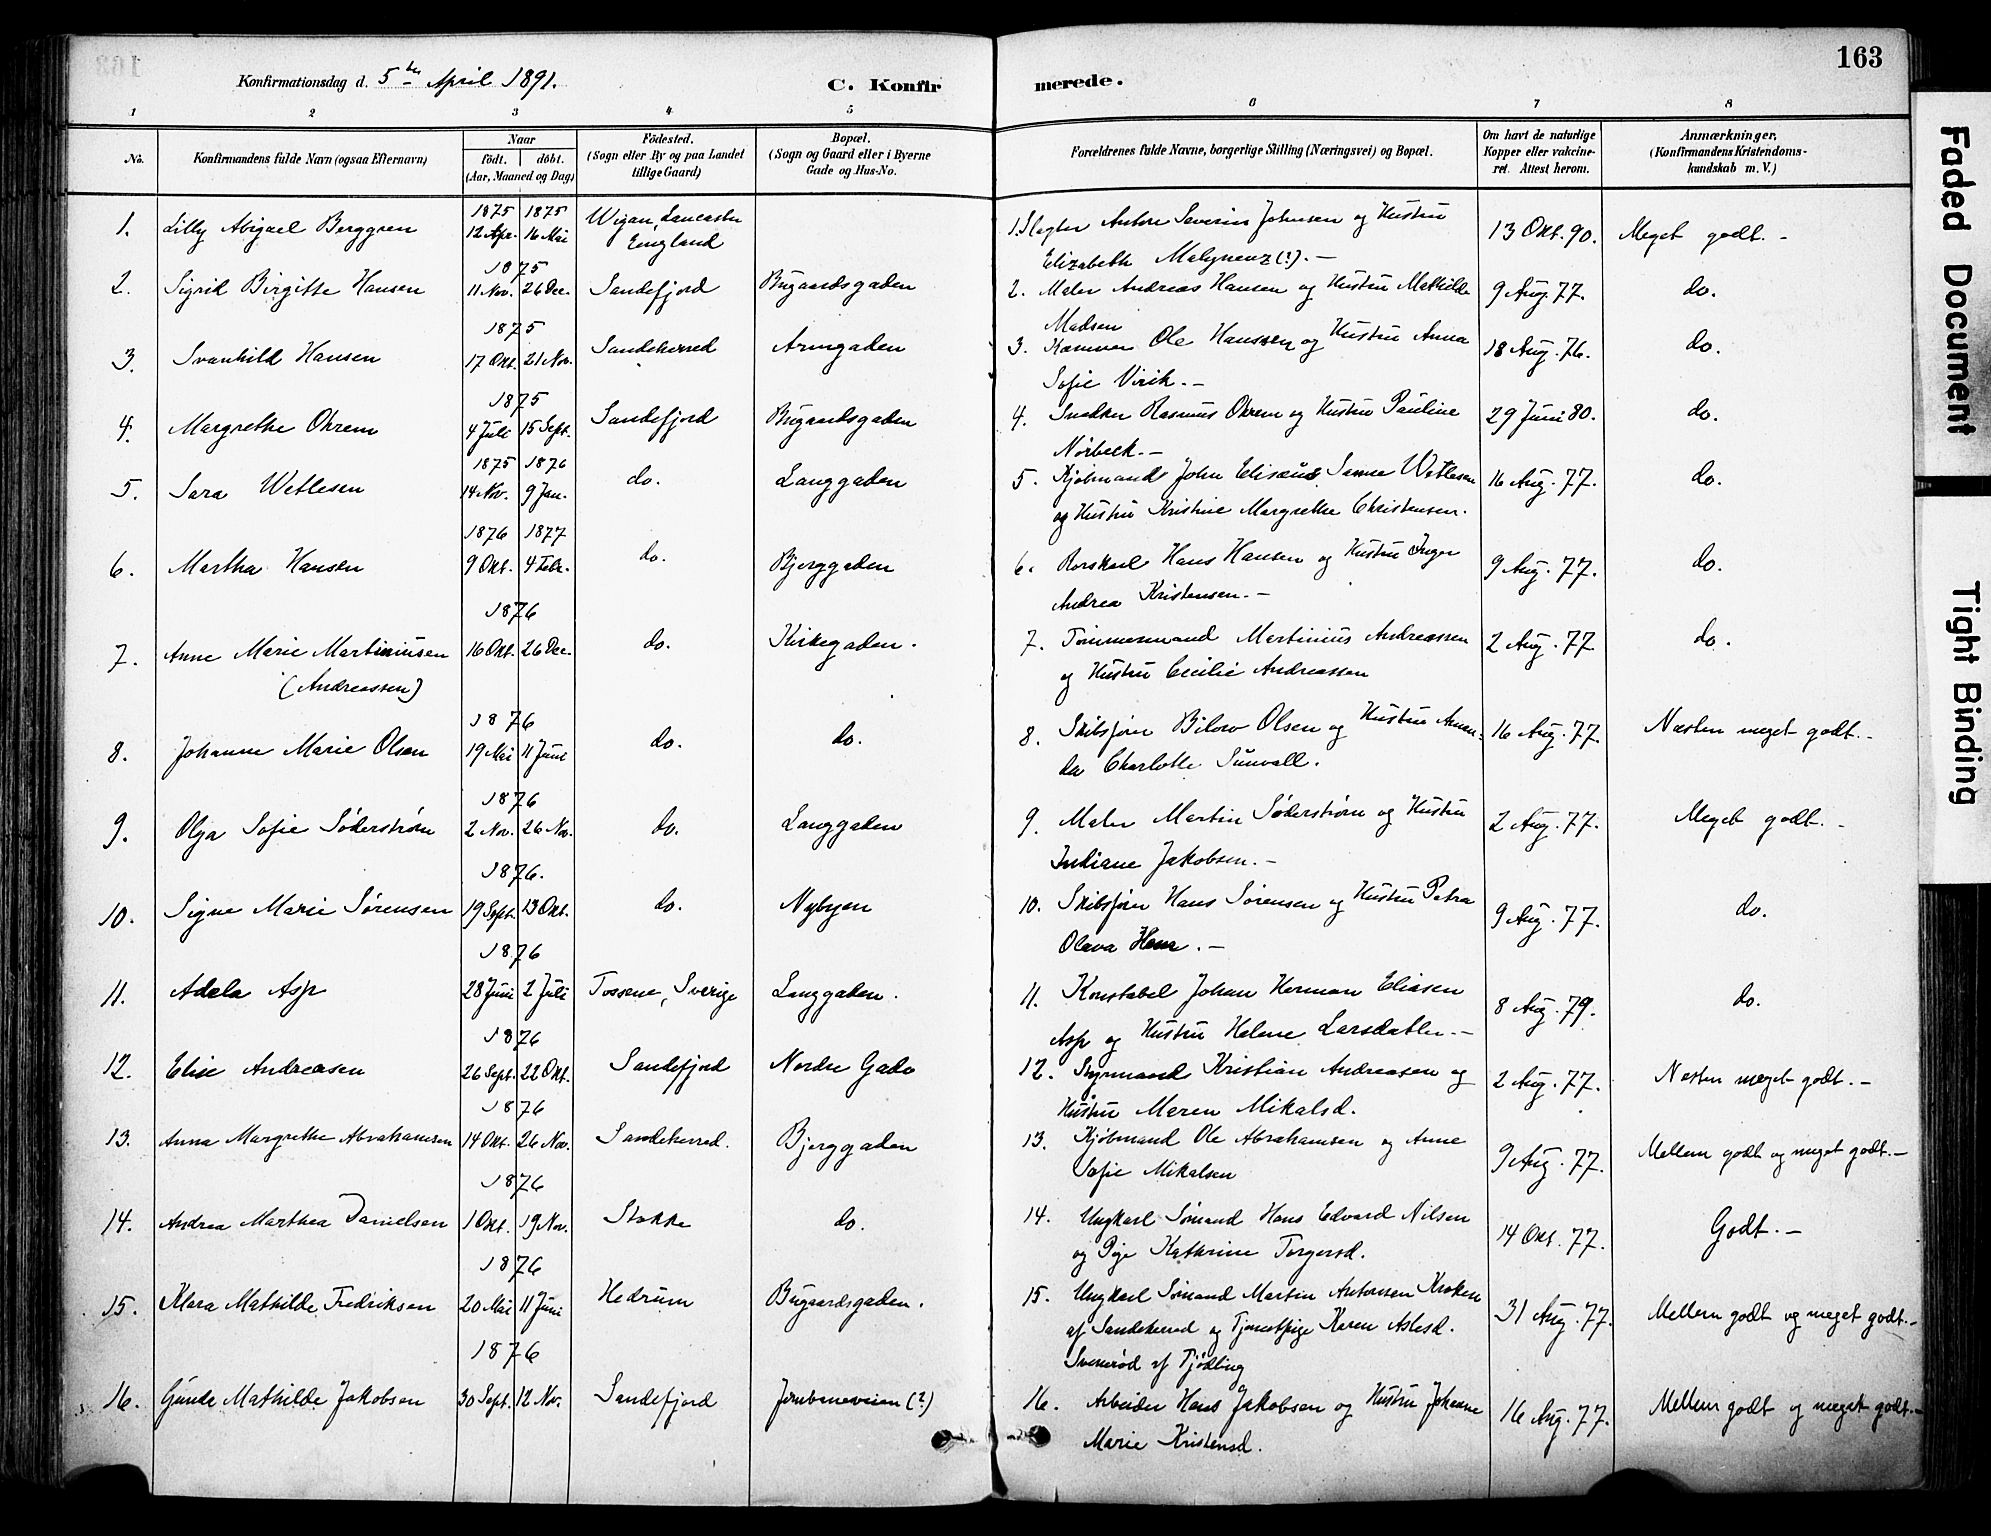 163
Konfirmationsdag d. 5te April 1891.
C. Konfirmerede.
1 2 3 4 5 6 7 8
No. Konfirmandens fulde Navn (ogsaa Efternavn) Naar födt. döbt. (Aar, Maaned og Dag) Födested. (Sogn eller By og paa Landet tillige Gaard) Bopæl. (Sogn og Gaard eller i Byerne Gade og Hus-No. Forældrenes fulde Navne, borgerlige Stilling (Næringsvei) og Bopæl. Om havt de naturlige Kopper eller vakcineret. Attest herom. Anmærkninger. (Konfirmandens Kristendomskundskab m. V.)
1. Lilly Abigael Berggren 1875 12 Apr. 1875 16 Mai Wigan, Lancaster England 1. Slagter Anton Severin Johnsen og Hustru Elizabeth (?).- 13 Okt. 90. Meget godt.-
2. Sigrid Birgitte Hansen 1875 11 Nov. 26 Dec. Sandefjord Bugaardsgaden 2. Maler Andreas Hansen og Hustru Mathilde Madsen 9 Aug. 77. do.
3. Svanhild Hansen 1875 17 Okt. 21 Nov. Sandeherred 3. Ole Hanssen og Hustru Anna Sofie Virik.- 18 Aug. 76. do.
4. Margrethe Okrem 1875 4 Juli 15 Sept. Sandefjord Bugaardsgaden 4. Snedker Rasmus Okrem og Hustru Pauline Nørbeck.- 29 Juni 80. do.
5. Sara Wetlesen 1875 14 Nov. 1876 9 Jan. do. Langgaden 5. Kjøbmand John Elisæus Sanne Wetlesen og Hustru Kristine Margrethe Christensen. 16 Aug. 77. do.
6. Martha Hansen 1876 9 Okt. 1877 4 Febr. do. Bjerggaden 6. Hans Hansen og Hustru Inger Andrea Kristensen.- 9 Aug. 77. do.
7. Anne Marie Martiniusen (Andreassen) 1876 16 Okt. 26 Dec. do. Kirkegaden. 7. Tømmermand Martinius Andreassen og Hustru Cecilie Andreassen 2 Aug. 77 do.
8. Johanne Marie Olsen 1876 19 Mai 11 Juni do. do. 8. Skibsfører Bilow Olsen og Hustru Amanda Charlotte Sunvall. 16 Aug. 77. Næsten meget godt.-
9. Olga Sofie Søderstrøm 1876 2 Nov. 26 Nov. do. Langgaden 9. Maler Martin Søderstrøm og Hustru Indiane Jakobsen.- 2 Aug. 77. Meget godt.-
10. Signe Marie Sørensen 1876. 19 Sept. 13 Okt. do. Nybyen 10. Skibsfører Hans Sørensen og Hustru Petra Olava.- 9 Aug. 77. do.
11. Adela Asp 1876 28 Juni 2 Juli Tossene, Sverige Langgaden. 11. Konstabel Johan Herman Eliasen Asp og Hustru Helene Larsdatter.- 8 Aug. 79. do.
12. Elise Andreasen 1876 26 Sept. 22 Okt. Sandefjord Nordre Gade 12. Styrmand Kristian Andreasen og Hustru Maren Mikalsd. 2 Aug. 77. Næsten meget godt.-
13. Anna Margrethe Abrahamsen 1876 14 Okt. 26 Nov. Sandeherred. Bjerggaden 13. Kjøbmand Ole Abrahamsen og Anne Sofie Mikalsen 9 Aug. 77. Mellem godt og meget godt.-
14. Andrea Marthea Danielsen 1876 1 Okt. 19 Nov. Stokke do. 14. Ungkarl Sømand Hans Edvard Nilsen og Pige Kathrine Torgersd. 14 Okt. 77. Godt.-
15. Klara Mathilde Fredriksen 1876 20 Mai 11 Juni Hedrum Bugaardsgaden. 15. Ungkarl Sømand Martin Antonsen Kroken af Sandeherred og Tjenestpige Karen Aslesd. af Tjødling 31 Aug. 77. Mellem godt og meget godt.-
16. Gunda Mathilde Jakobsen 1876 30 Sept. 12 Nov. Sandefjord Jernbaneveien (?) 16. Arbeider Hans Jakobsen og Hustru Johanne Marie Kristensd. 16 Aug. 77. Mellem godt og meget godt.-
Faded Document
Tight Binding